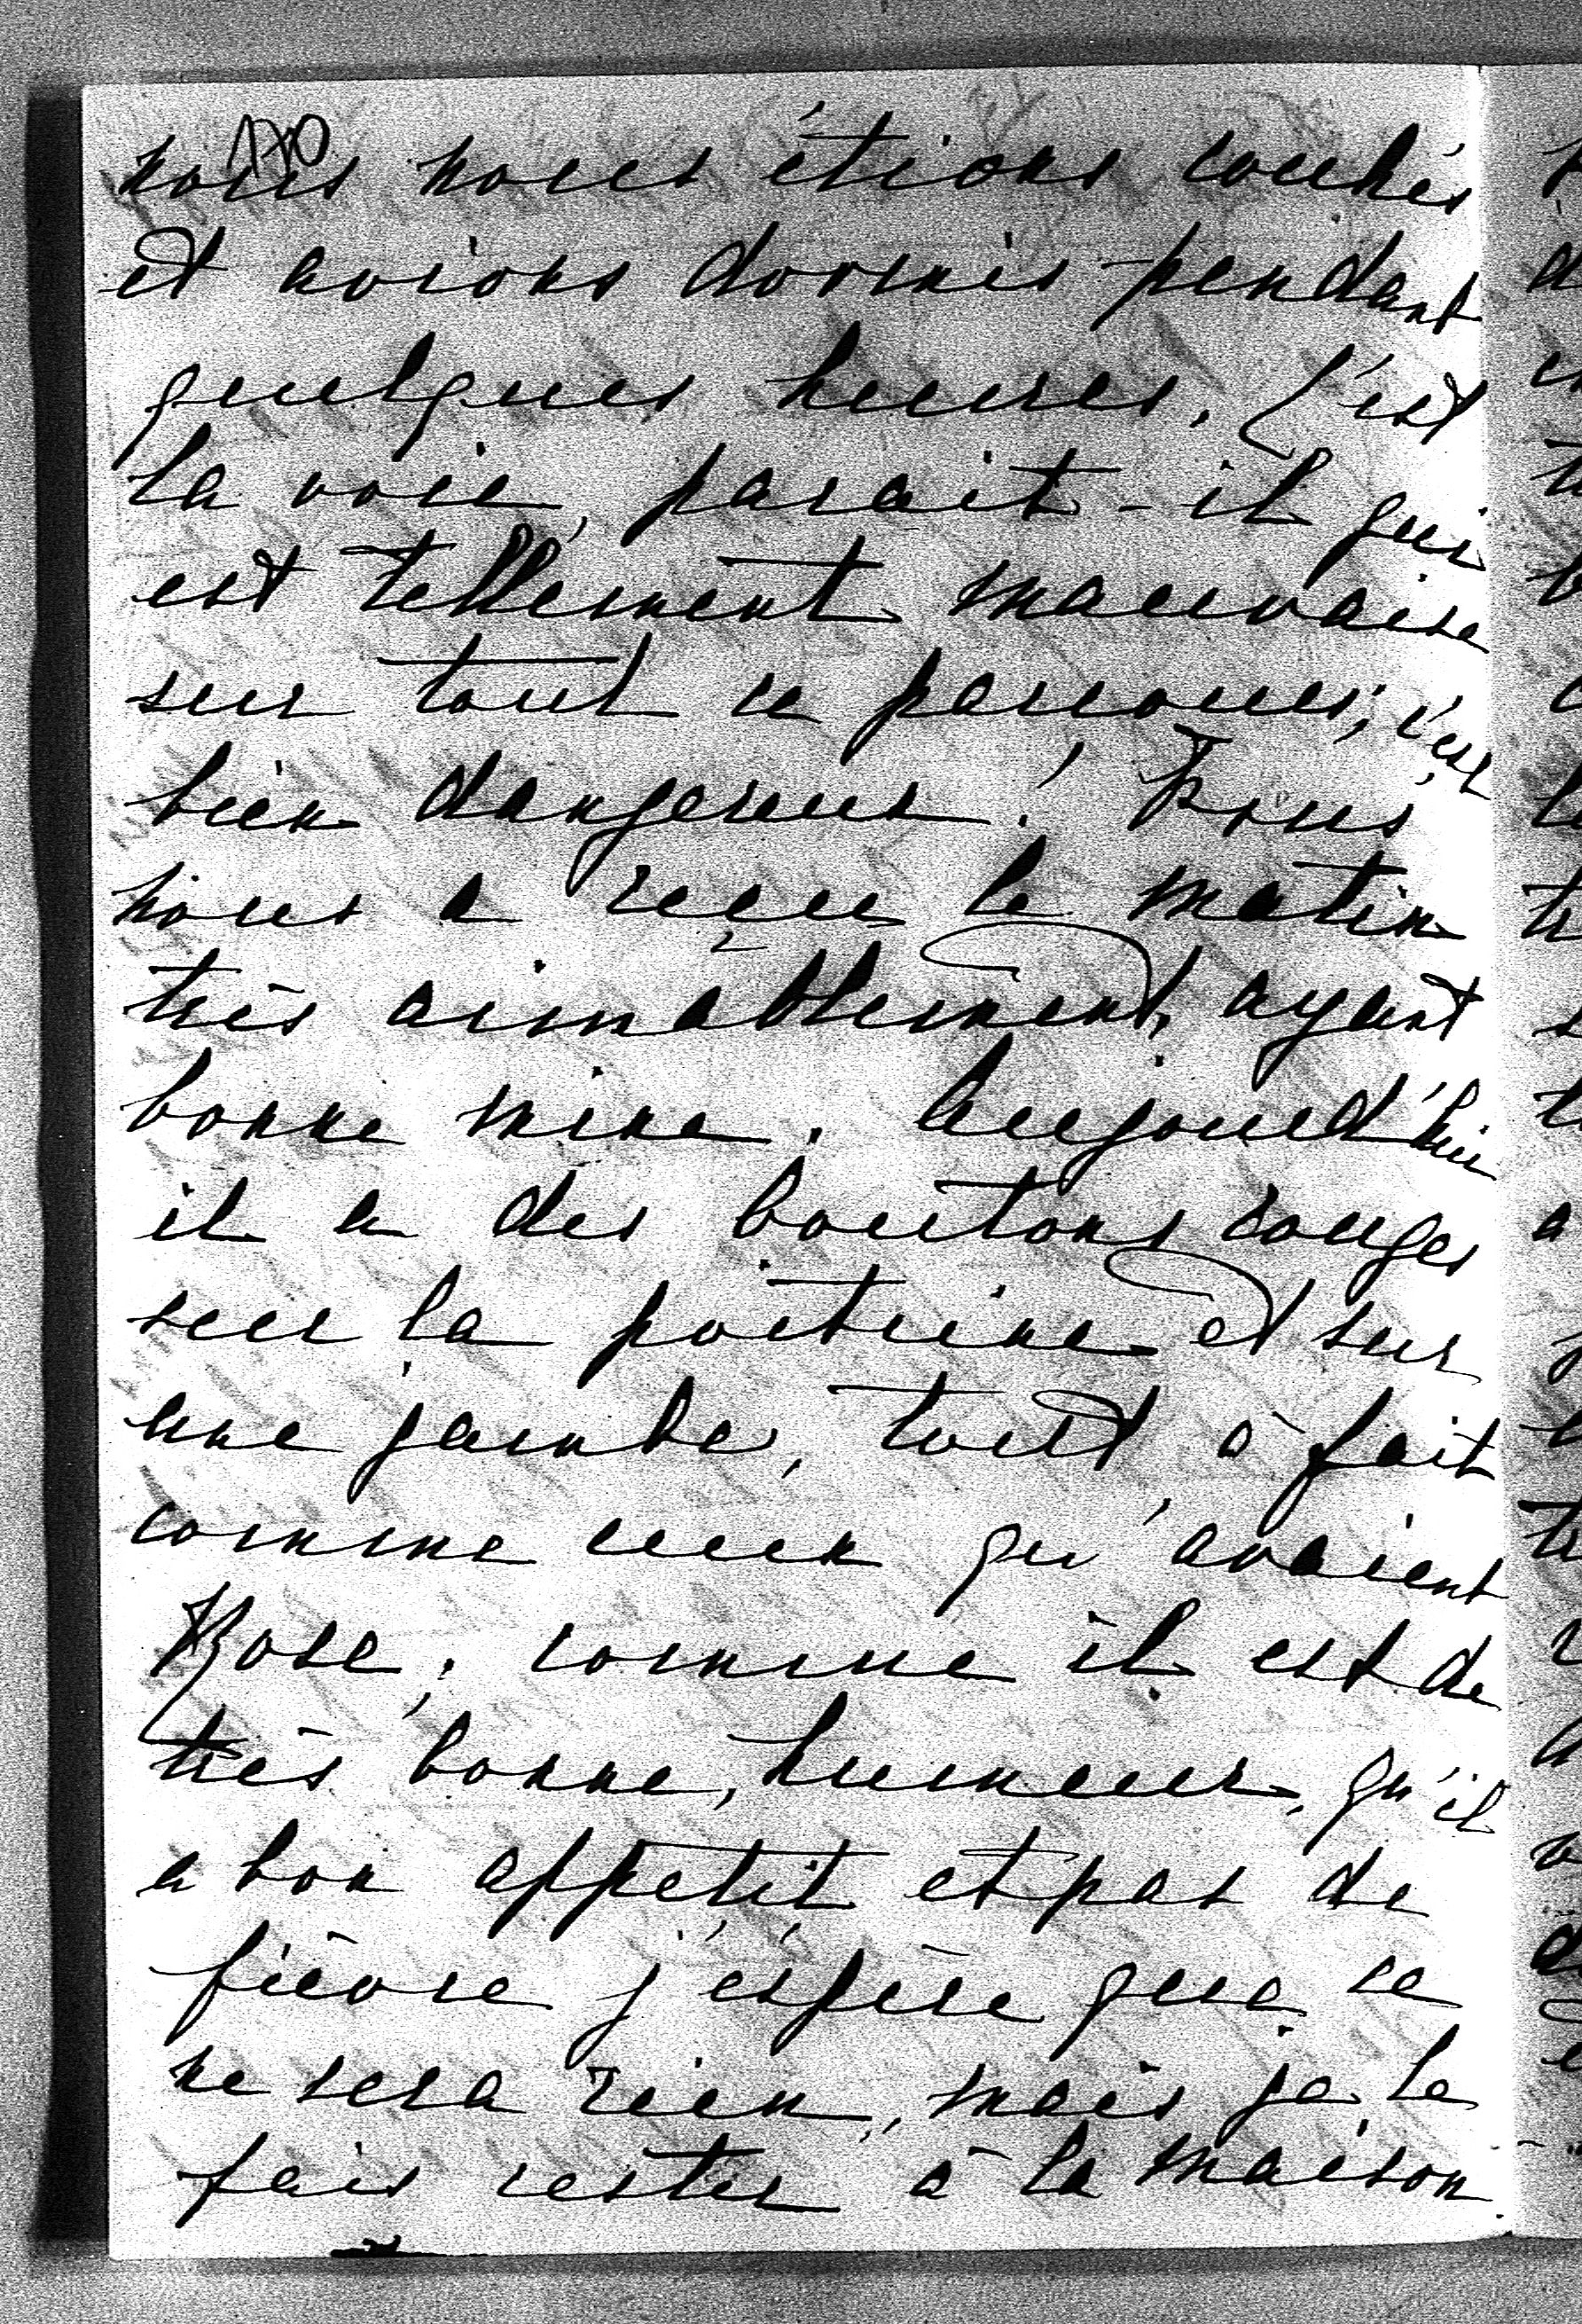 170
nous nous étions couchés
et avions dormis pendant
quelques heures. C'est
la voie, parait-il qui
est tellement mauvaise
sur tout ce parcours; c'est
bien dangereux! 
nous a reçu le matin
très aimablement, ayant
bonne mine. Aujourd'hui
il a des boutons rouges
sur la poitrine et sur
une jambe, tout à fait
comme ceux qu'avaient
Rose; comme il est de
très bonne, humeur, qu'il
a bon appetit et pas de
fièvre j'éspère que ce
ne sera rien, mais je le
fais rester à la maison